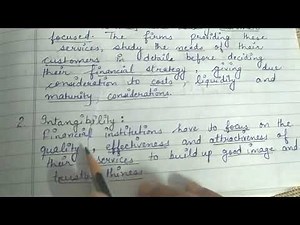 focused. The firms providing these
services, study the needs of their
customers in details before deciding
their financial strategy, giving due
consideration to costs, liquidity and
maturity considerations.
2 Intangibility:
Financial institutions have to focus on the
quality, effectiveness and attractiveness of
their services to build up good image and